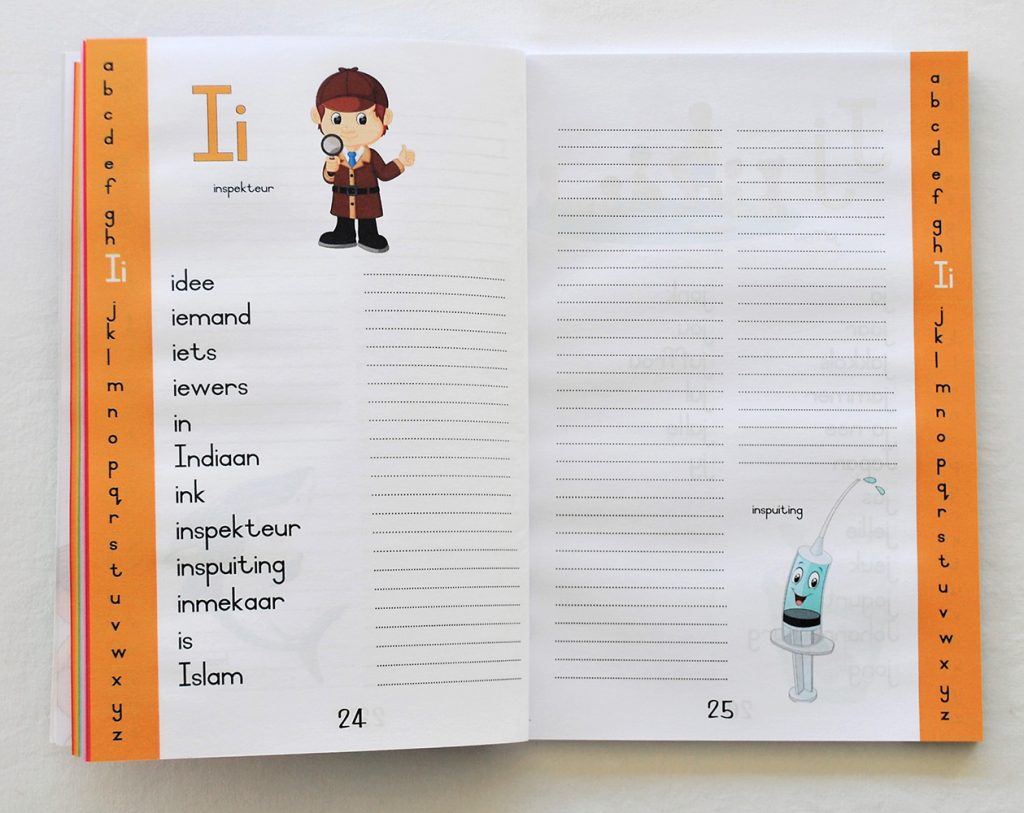 a
b
c
d
e
f
g
h
Ii
j
k
l
m
n
o
p
q
r
s
t
u
v
w
x
y
z
Ii
inspekteur
idee
iemand
iets
iewers
in
Indiaan
ink
inspekteur
inspuiting
inmekaar
is
Islam
24
inspuiting
25
a
b
c
d
e
f
g
h
Ii
j
k
l
m
n
o
p
q
r
s
t
u
v
w
x
y
z